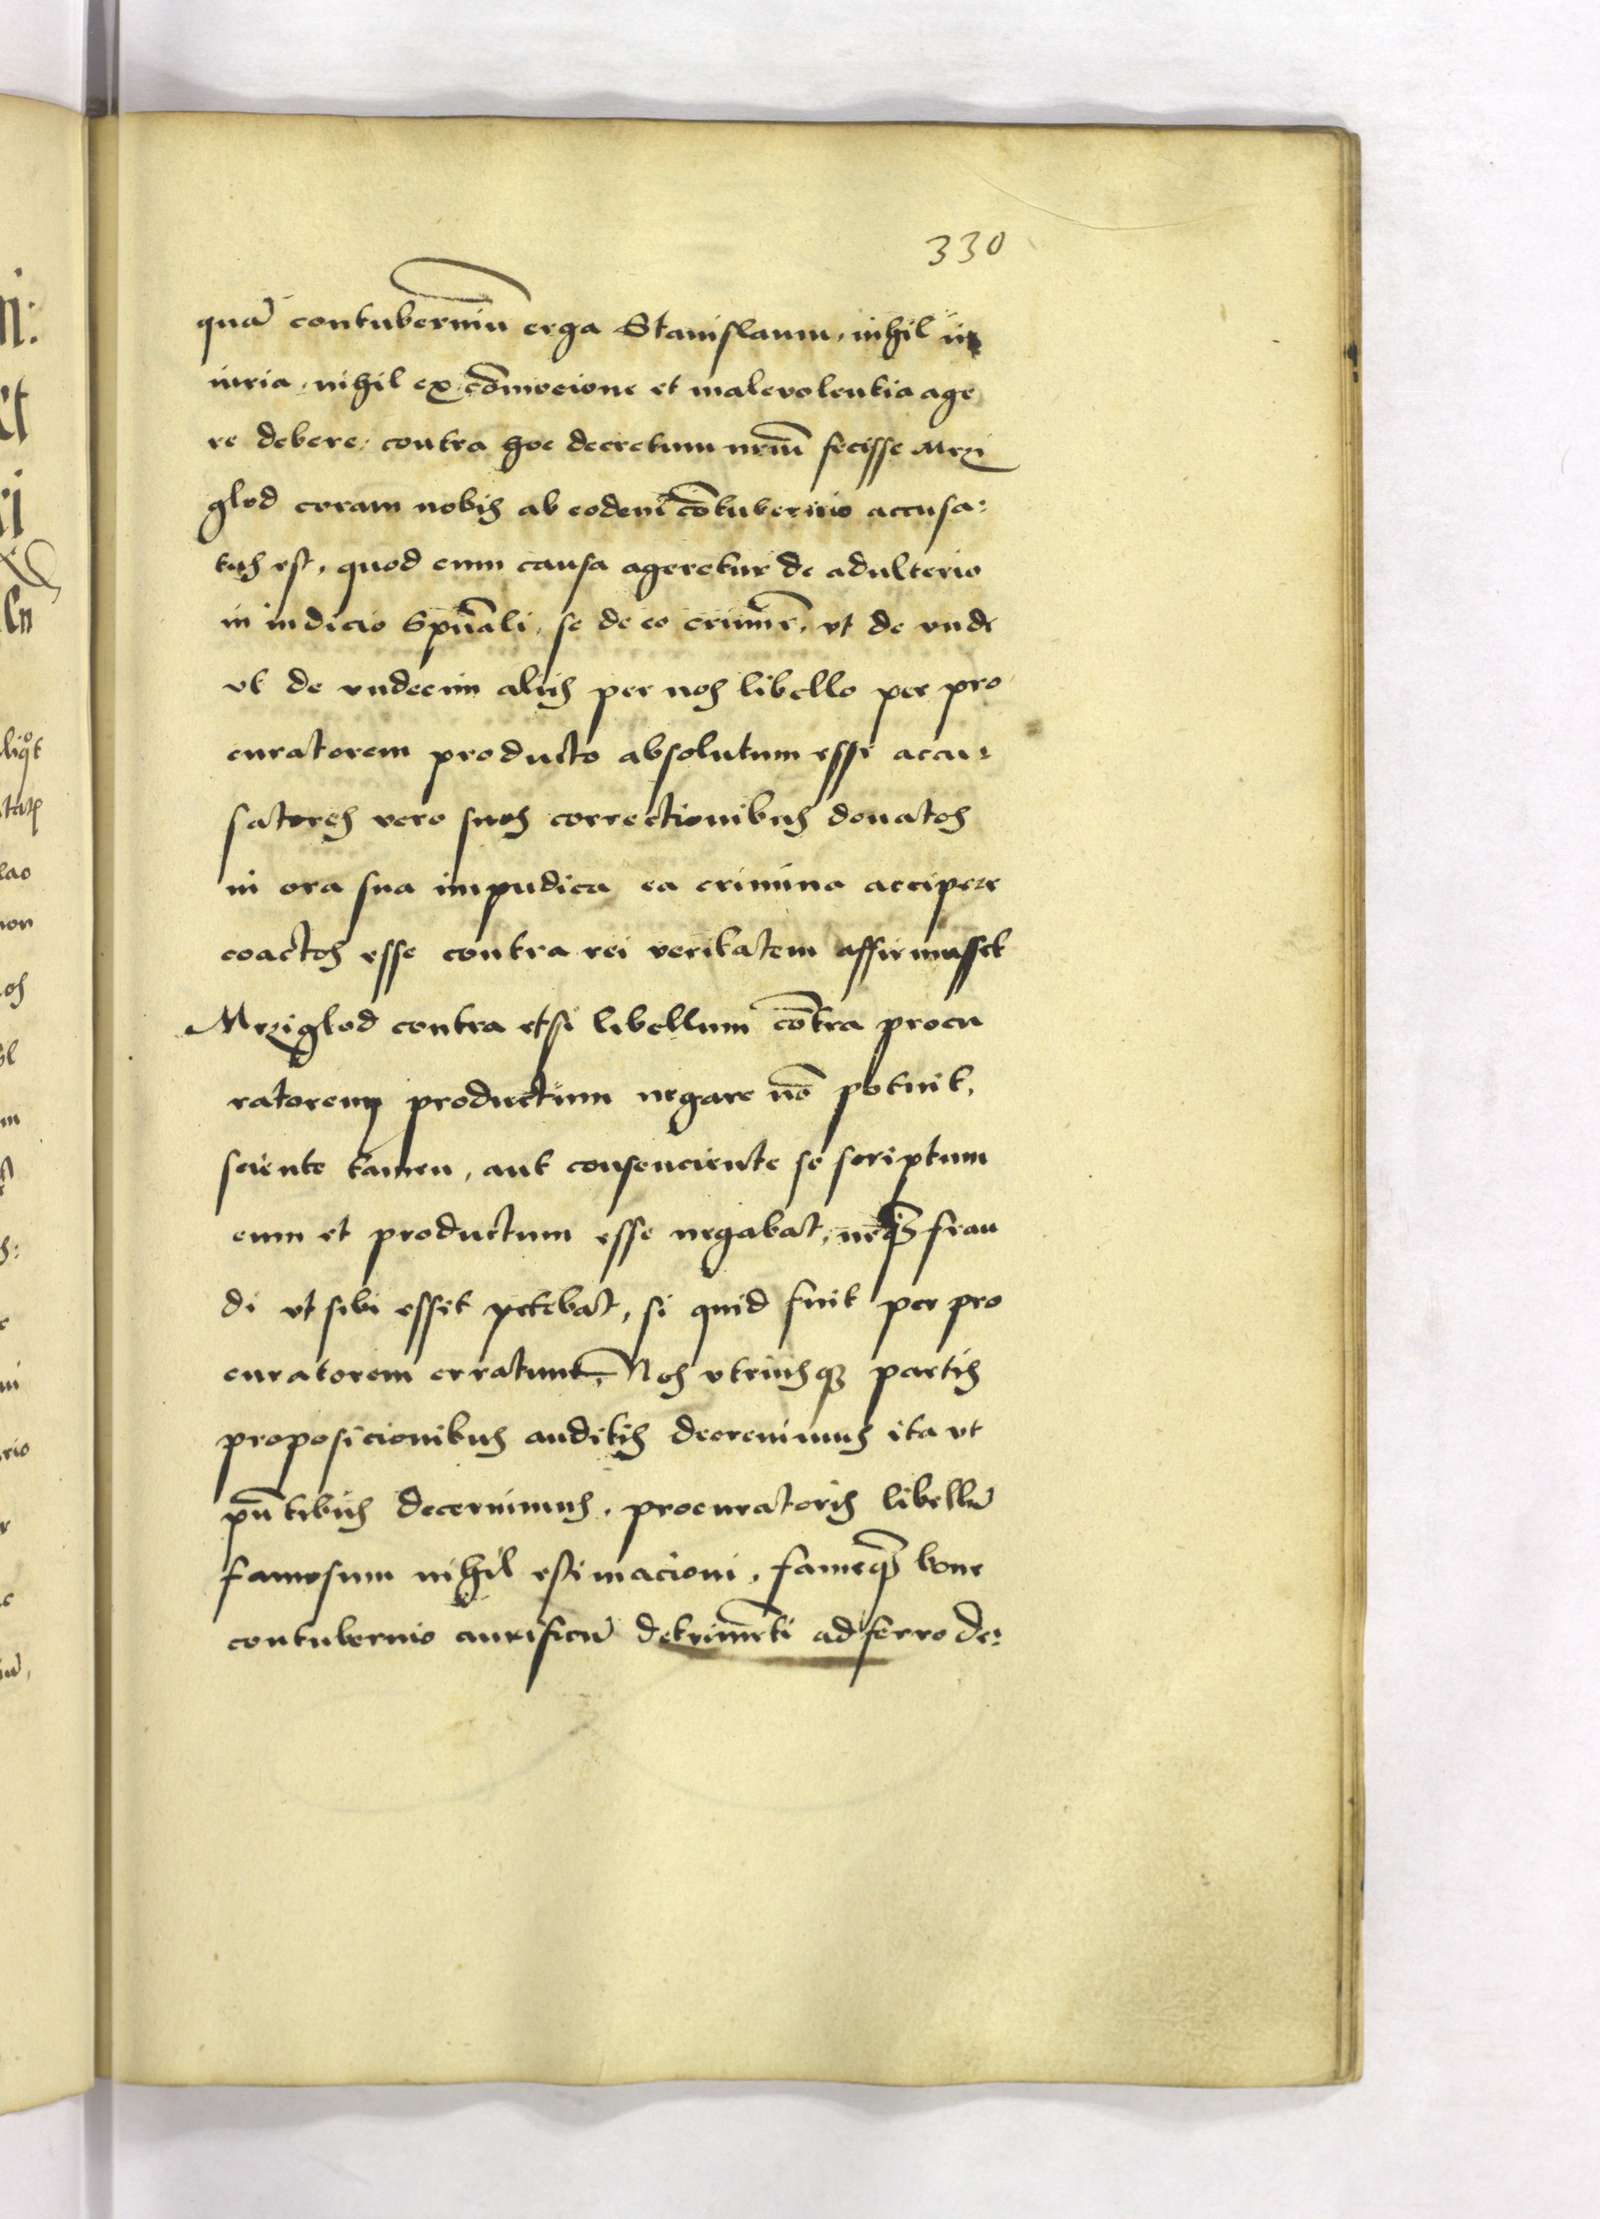 330
quā contuberniū erga Stanislaum, nihil in
iuria, nihil ex cōmocione et malevolentia age
re debere, contra hoc decretum nrūm fecisse Mrzi
glod coram nobis ab eodem cōtubernio accusa:
tus est, quod cum causa ageretur de adulterio
in iudicio Spūali, se de eo crimīe, ut de unde
ut de undecim aliis per nos libello per pro
curatorem producto absolutum esse accu:
satores vero suos correctionibus donatos
in ora sua impudica ea crimina accipere
coactos esse contra rei veritatem affirmasset
Mrziglod contra etsi libellum cōtra procu
ratorem productum negare nō potuit,
sciente tamen, aut consenciente se scriptum
eum et productum esse negabat, neqꝫ frau
di ut sibi esset petebat, si quid fuit per pro
curatorem erratum, Nos utriusqꝫ partis
proposicionibus auditis decrevimus ita ut
pn̄tibus decernimus, procuratoris libellū
famosum nihil estimacioni, fameqꝫ bone
contubernio aurificū detrimēti adferro de: